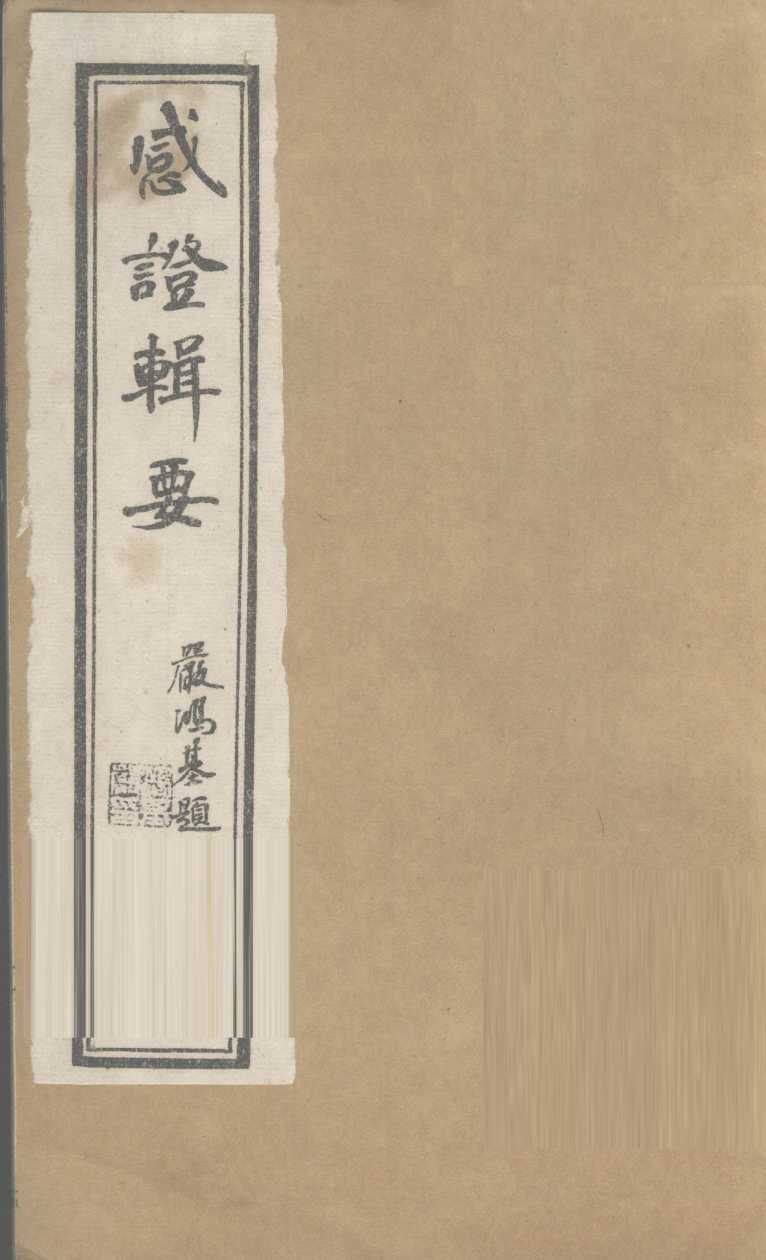 感證輯要
嚴鴻基題